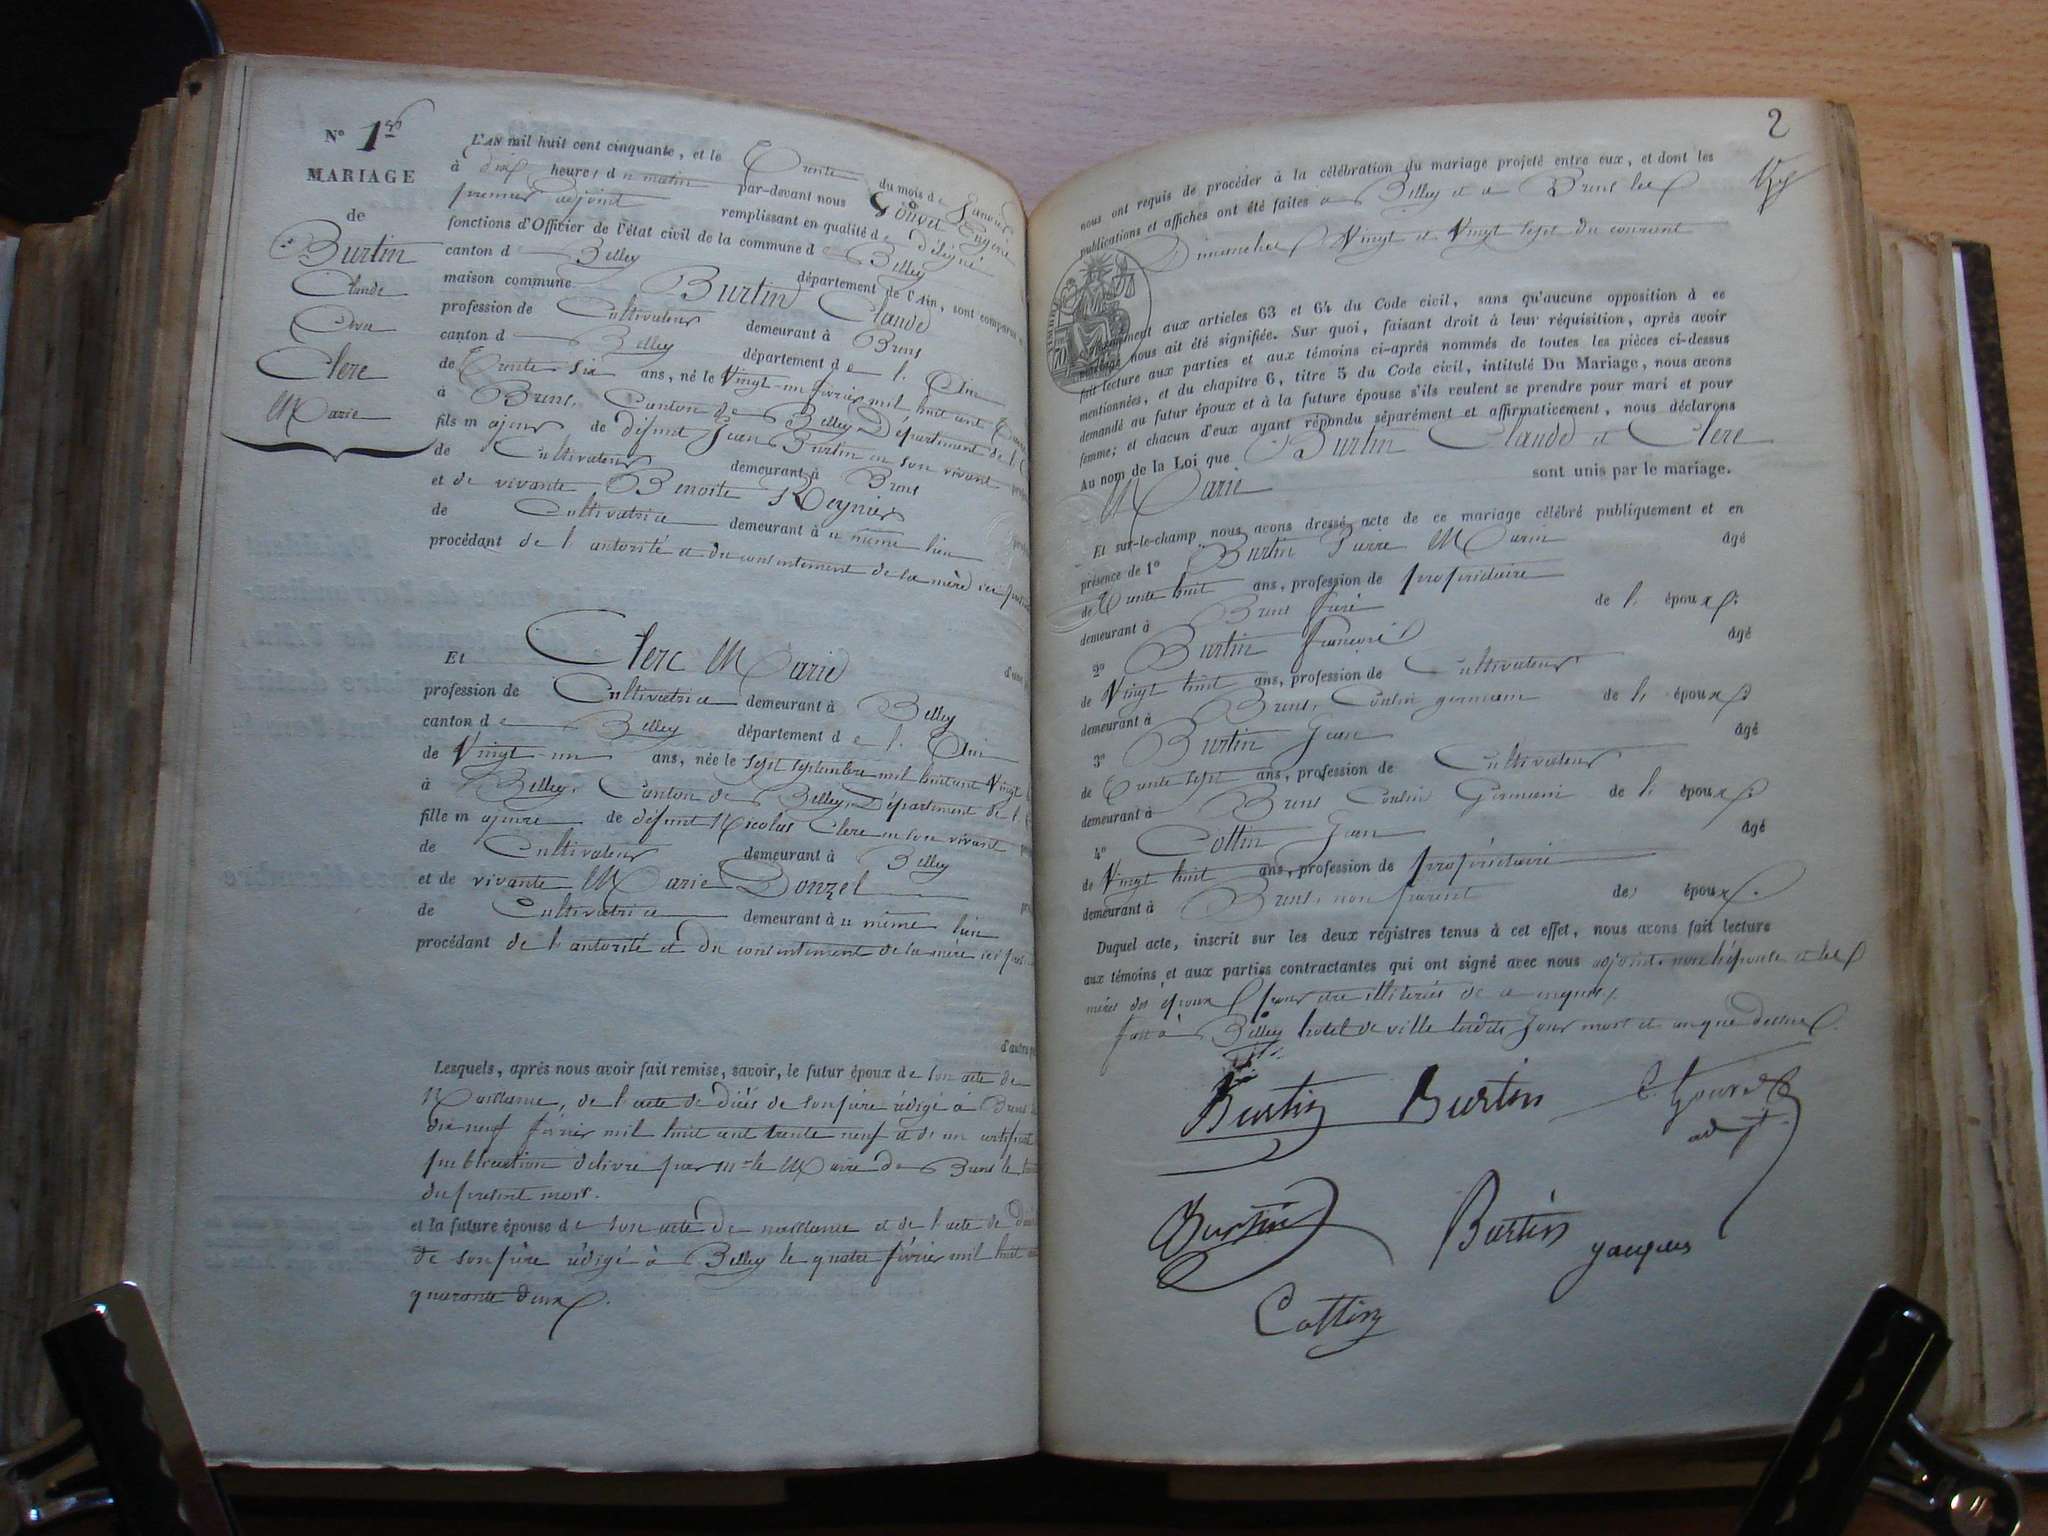 N° 1er
MARIAGE
de
Burtin
Claude
Avec
Clerc
Marie
L'AN mil huit cent cinquante, et le Trente du mois de Janvier
à dix heures du matin par-devant nous Eugène
premier adjoint remplissant en qualité de Délégué
fonctions d'Officier de l'état civil de la commune de Belley
canton de Belley département de l'Ain, sont comparus
maison commune Burtin Claude
profession de Cultivateur demeurant à Brens
canton de Belley département de l'Ain
de Trente six ans, né le Vingt-un février mil huit cent
à Brens, Canton de Belley Département de l'
fils majeur de défunt Jean Burtin en son vivant
de Cultivateur demeurant à Brens
et de vivante Benoite Reynier
de Cultivatrice demeurant au même lieu
procédant de l'autorité et du consentement de la mère ici
Et Clerc Marie d'une
profession de Cultivatrice demeurant à Belley
canton de Belley département de l'Ain
de Vingt-un ans, née le sept septembre mil huit cent Vingt
à Belley, Canton de Belley, Département de l'
fille majeure de défunt Nicolas Clerc en son vivant
de Cultivateur demeurant à Belley
et de vivante Marie Donzel
de Cultivatrice demeurant au même lieu
procédant de l'autorité et du consentement de la mère ici
d'autre
Lesquels, après nous avoir fait remise, savoir, le futur époux de son acte de
Naissance, de l'acte de décès de son père rédigé à Brens
du neuf février mil huit cent trente neuf et d'un certificat
publication délivré par Mr le Maire de Brens le
du présent mois.
et la future épouse de son acte de naissance et de l'acte de décès
de son père rédigé à Belley le quatre février mil huit
quarante deux.
2
nous ont requis de procéder à la célébration du mariage projeté entre eux, et dont les
publications et affiches ont été faites à Belley et à Brens les
Dimanches Vingt et Vingt sept du courant
conformément aux articles 63 et 64 du Code civil, sans qu'aucune opposition à ce
mariage nous ait été signifiée. Sur quoi, faisant droit à leur réquisition, après avoir
fait lecture aux parties et aux témoins ci-après nommés de toutes les pièces ci-dessus
mentionnées, et du chapitre 6, titre 5 du Code civil, intitulé Du Mariage, nous avons
demandé au futur époux et à la future épouse s'ils veulent se prendre pour mari et pour
femme; et chacun d'eux ayant répondu séparément et affirmativement, nous déclarons
Au nom de la Loi que Burtin Claude et Clerc
Marie sont unis par le mariage.
Et sur-le-champ nous avons dressé acte de ce mariage célébré publiquement et en
présence de 1° Burtin Pierre Marin âgé
de Trente huit ans, profession de propriétaire
demeurant à Brens frère de l' époux
2° Burtin François âgé
de Vingt huit ans, profession de Cultivateur
demeurant à Brens, Cousin germain de l' époux
3° Burtin Jean âgé
de Trente sept ans, profession de Cultivateur
demeurant à Brens Cousin Germain de l' époux
4° Cottin Jean âgé
de Vingt huit ans, profession de propriétaire
demeurant à Brens, non parent des époux.
Duquel acte, inscrit sur les deux registres tenus à cet effet, nous avons fait lecture
aux témoins et aux parties contractantes qui ont signé avec nous adjoint, non l'épouse et les
mères des époux pour être illitérées de ce enquis.
fait à Belley hotel de ville lesdits jour mois et an que dessus.
Burtin Burtin
adjt
Burtin Burtin
jacques
Cottin